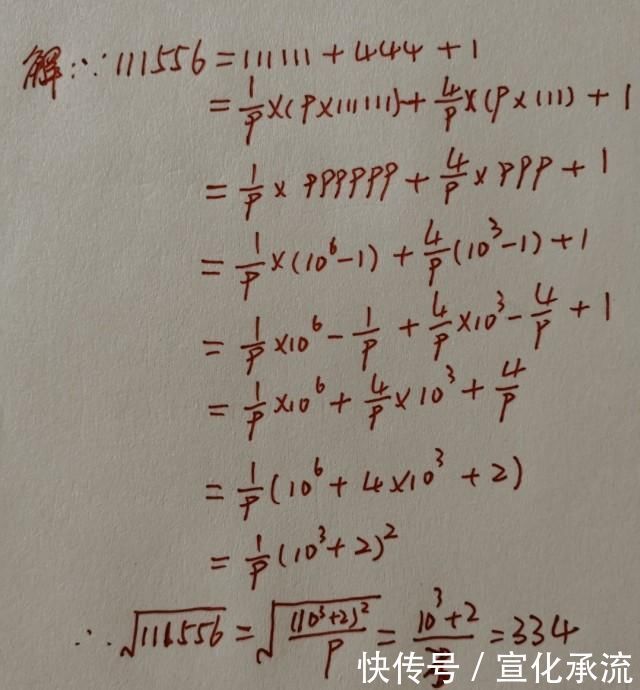 解:∵111556=111111+444+1
=1/9×(9×111111)+4/9×(9×111)+1
=1/9×999999+4/9×999+1
=1/9×(10⁶-1)+4/9(10³-1)+1
=1/9×10⁶-1/9+4/9×10³-4/9+1
=1/9×10⁶+4/9×10³+4/9
=1/9(10⁶+4×10³+2)
=1/9(10³+2)²
∴√111556=√((10³+2)²/9)=(10³+2)/3=334
快传号/宣化承流